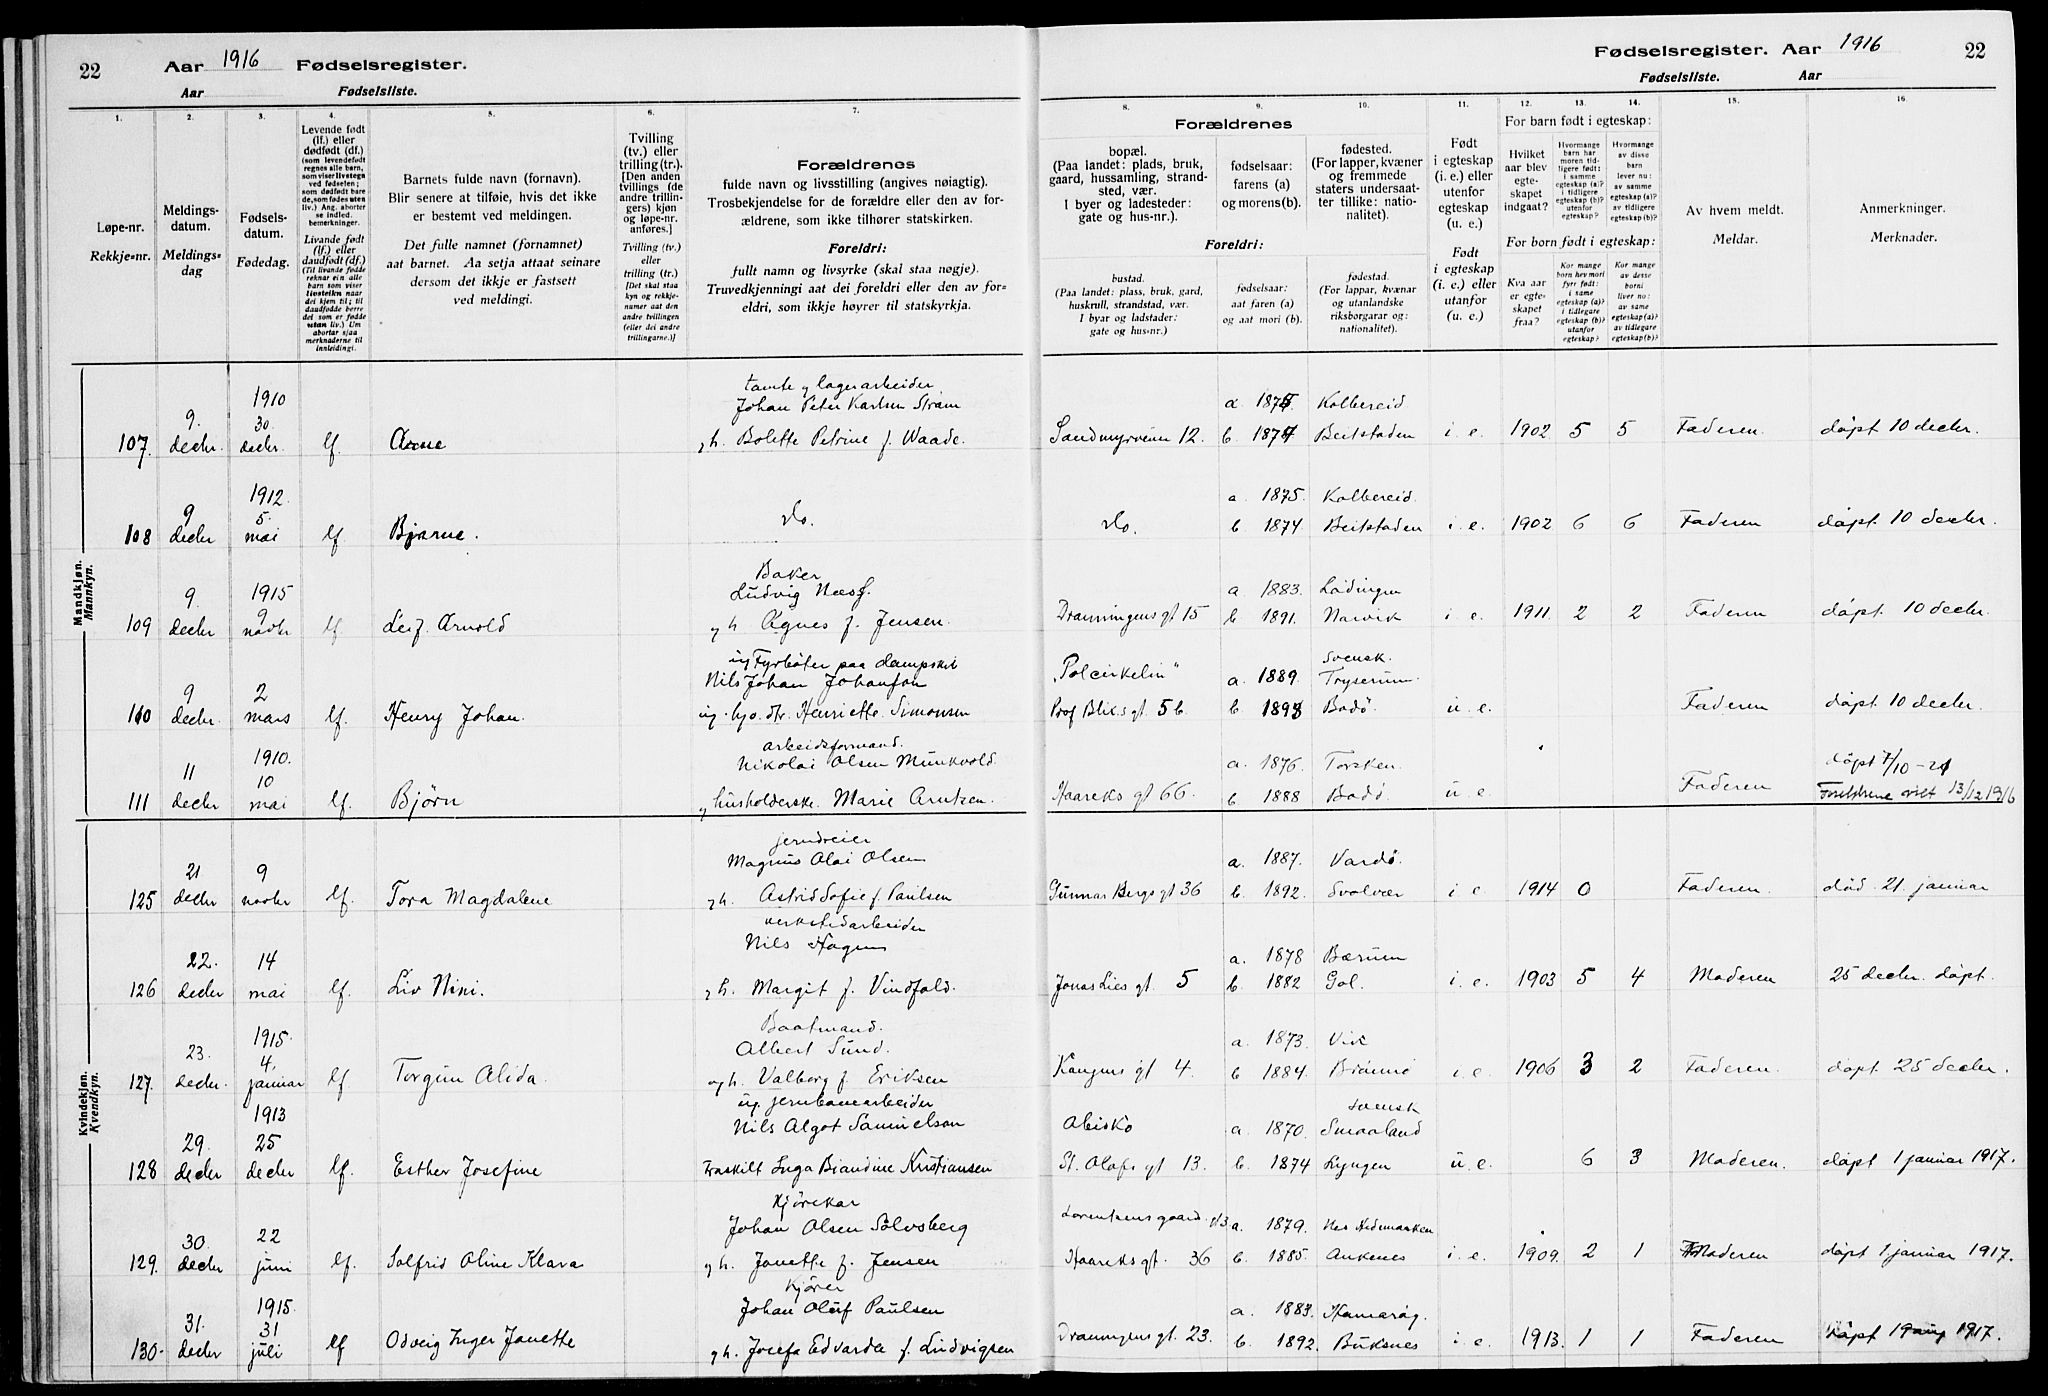 22 Aar 1916 Fødselsregister.
Aar Fødselsliste.
Fødselsregister. Aar 1916 22
Fødselsliste. Aar
1. 2. 3. 4. 5. 6. 7.
Løpe-nr.
Rekkje-nr.
Meldings-
datum.
Meldings-
dag
Fødsels-
datum.
Fødedag.
Levende født
(lf.) eller
dødfødt (df.)
(som levendefødt
regnes alle barn,
som viser livstegn
ved fødselen;
som dødfødt bare
de, som fødes uten
liv.) Ang. aborter
se indled.
bemerkninger.
Livande født
(lf.) eller
daudfødt (df.)
(Til livande fødde
reknar ein alle
barn som viser
livsteikn naar
dei kjem til; til
daudfødde berre
dei som er fødde
utan liv.) Um
abortar sjaa
merknaderne til
innleidingi.
Barnets fulde navn (fornavn).
Blir senere at tilføie, hvis det ikke
er bestemt ved meldingen.
Det fulle namnet (fornamnet)
aat barnet. Aa setja attaat seinare
dersom det ikkje er fastsett
ved meldingi.
Tvilling
(tv.) eller
trilling (tr.).
[Den anden
tvillings (de
andre trillin-
gers) kjøn
og løpe-nr.
anføres.]
Tvilling (tv.)
eller
trilling (tr.)
[Det skal staa
kyn og rekkje-
numer aat den
andre tvillingen
(eller dei andre
trillingarne.)]
Forældrenes
fulde navn og livsstilling (angives nøiagtig).
Trosbekjendelse for de forældre eller den av for-
ældrene, som ikke tilhører statskirken.
Foreldri:
fullt namn og livsyrke (skal staa nøgje).
Truvedkjenningi aat dei foreldri eller den av for-
eldri, som ikkje høyrer til statskyrkja.
8. 9. 10. 11. 12. 13. 14. 15. 16.
Forældrenes
bopæl.
(Paa landet: plads, bruk,
gaard, hussamling, strand-
sted, vær.
I byer og ladesteder:
gate og hus-nr.).
fødselsaar:
farens (a)
og morens (b).
fødested.
(For lapper, kvæner
og fremmede
staters undersaat-
ter tillike: natio-
nalitet).
Foreldri:
bustad.
(Paa landet: plass, bruk, gard,
huskrull, strandstad, vær.
I byar og ladstader:
gate og hus-nr.)
fødselsaar:
aat faren (a)
og aat mori (b).
fødestad.
(For lappar, kvænar
og utanlandske
riksborgarar og:
nationalitet).
Født
i egteskap
(i. e.) eller
utenfor
egteskap
(u. e.)
Født
i egteskap
(i. e.) eller
utanfor
(u. e.)
For barn født i egteskap:
Hvilket
aar blev
egte-
skapet
indgaat?
Hvormange
barn har
moren tid-
ligere født:
i samme
egteskap (a)?
i tidligere
egteskap (b)?
utenfor
egteskap?
Hvormange
av disse
barn
lever nu:
av samme
egteskap (a)?
av tidligere
egteskap (b)?
For born født i egteskap:
Kva aar
er egte-
skapet
fraa?
Kor mange
born hev mori
fyrr født:
i same
egteskap (a)?
i tidlegare
egteskap (b)?
utanfor
egteskap?
Kor mange
av desse
borni
liver no:
av same
egteskap (a)?
av tidlegare
egteskap (b)?
Av hvem meldt.
Meldar.
Anmerkninger.
Merknader.
Mandkjøn.
Mannkyn.
1910 tomte og lagerarbeider
9. 30. Johan Peter Karlsen Strøm a. 1875. Kolbereid
107. decbr. decbr. lf. Arne og h. Bolette Petrine f. Waade. Sandmyrveien 12. b. 1874 Beitstaden i. e. 1902 5 5 Faderen. døpt 10 decbr.
1912.
9 5. a. 1875. Kolbereid.
108 decbr mai lf Bjarne. do. do. b. 1874 Beitstaden i. e. 1902 6 6 Faderen døpt. 10 decbr.
1915 Baker
9. 9 Ludvig Næss. a 1883. Lødingen
109 decbr novbr lf Leif Arnold og h Agnes f. Jensen. Dronningens gt 15 b 1891. Narvik i. e. 1911. 2 2 Faderen døpt. 10 decbr.
ug Fyrbøter paa dampskib svensk.
9 2 Nils Johan Johansson "Polcirkelin" a. 1889. Tryserum.
110 decbr. mars lf. Henry Johan. ug. hjo. dtr. Henriette Simonsen Prof Bliks gt. 5 b. b. 1898 Bodø. u. e. Faderen døpt. 10 decbr.
1910. arbeidsformand.
11 10 Nikolai Olsen Munkvold. a. 1876. Torsken. døpt 7/10-21
111 decbr mai lf. Bjørn og husholderske. Marie Arntzen. Haareks gt 66. b 1888 Bodø. u. e. Faderen Foreldrene viet 13/12 1916
Kvindekjøn.
Kvendkyn.
jerndreier
21 9 Magnus Olai Olsen a. 1887. Vardø.
125 decbr novbr lf. Tora Magdalene og h. Astrid Sofie f. Paulsen Gunnar Bergs gt 36 b. 1892. Svolvær i. e 1914 0 Faderen. død. 21. januar
verkstedarbeider
22. 14 Nils Hagen a. 1878 Bærum
126 decbr mai lf. Liv Nini. og h. Margit f. Vindfald. Jonas Lies gt. 5 b. 1882 Gol. i. e. 1903 5 4 Moderen 25 decbr. døpt.
1915. Baatmand.
23. 4. Albert Sund. a. 1873. Vik
127. decbr. januar lf Torgun Alida. og h. Valborg f. Eriksen Kongens gt 4. b 1884. Brønnø i. e. 1906 3 2 Faderen. døpt 25 decbr.
1913 ug. jernbanearbeider svensk
29. 25 Nils Algot Samuelson Abisko a. 1870. Smaaland
128 decbr decbr lf. Esther Josefine fraskilt Inga Biandine Kristiansen St. Olafs gt 13. b. 1874 Lyngen u. e. 6 3 Moderen. døpt 1 januar 1917.
Kjørekar
30. 22 Johan Olsen Sølvsberg Lorentzens gaard a. 1879. Nes Hedemarken
129. decbr juni lf. Solfrid Oline Klara og h. Janette f. Jensen Haareks gt. 36 b. 1885. Ankenes i. e. 1909. 2 1 Moderen døpt 1 januar 1917.
1915. Kjører
31. 31 Johan Oluf Paulsen a. 1883. Hamarøg.
130. decbr juli lf Odveig Inger Janette og h. Josefa Edvarda f. Ludvigsen Dronningens gt. 23. b. 1892. Buksnes i. e. 1913. 1 1 Faderen døpt 19 aug 1917.